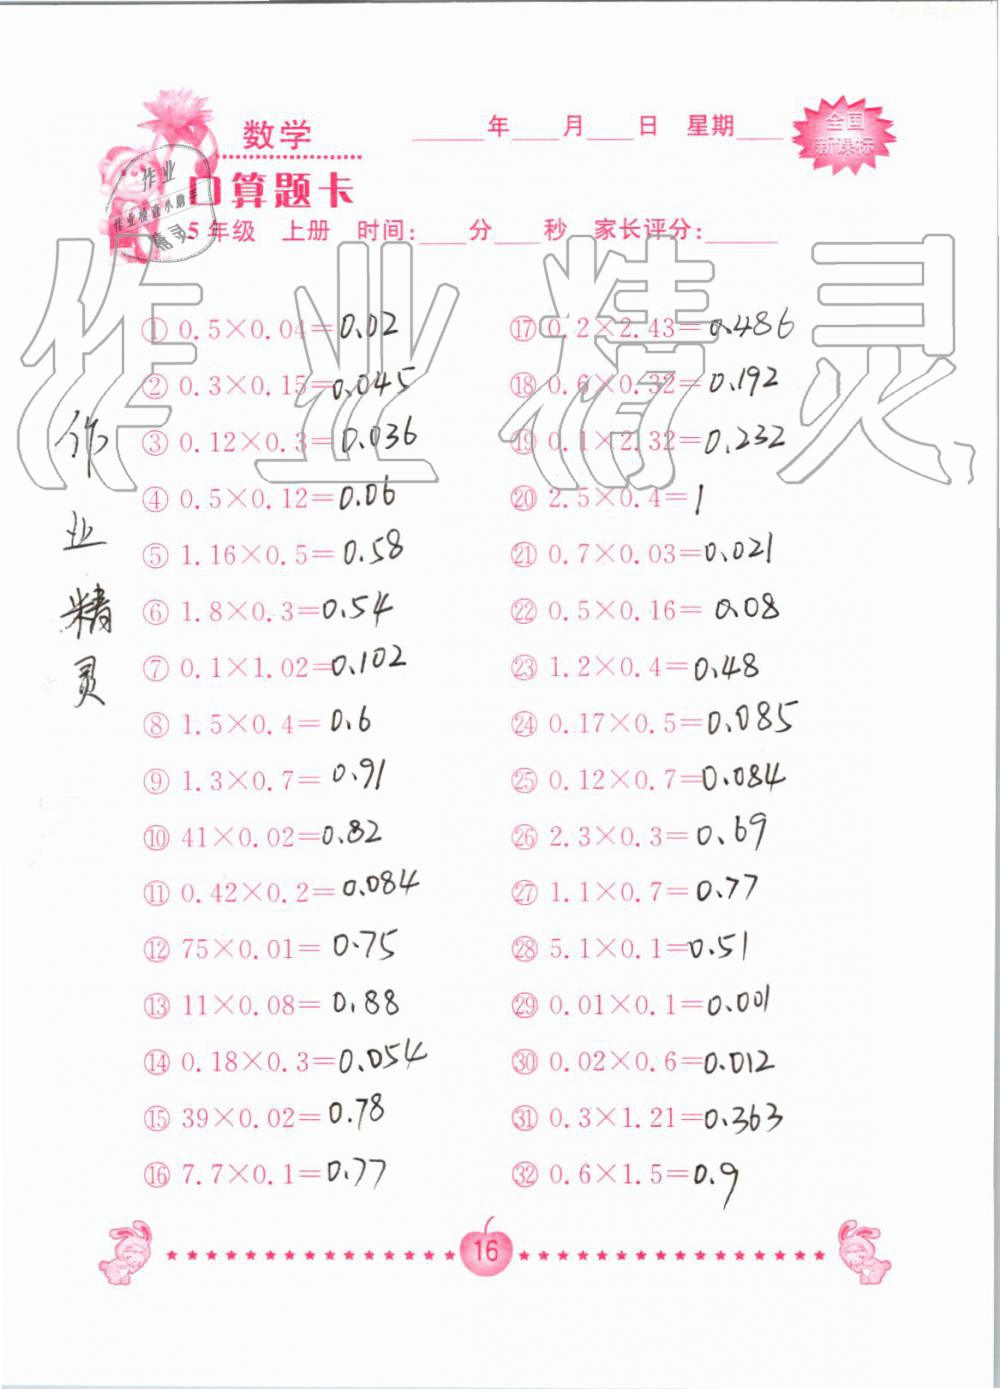 数学
口算题卡
____年____月____日 星期____
全国
新课标
5年级 上册 时间:____分____秒 家长评分:______
作业
作业检查小助手
精灵
作业精灵
作业精灵
① 0.5×0.04=0.02
② 0.3×0.15=0.045
③ 0.12×0.3=0.036
④ 0.5×0.12=0.06
⑤ 1.16×0.5=0.58
⑥ 1.8×0.3=0.54
⑦ 0.1×1.02=0.102
⑧ 1.5×0.4=0.6
⑨ 1.3×0.7=0.91
⑩ 41×0.02=0.82
⑪ 0.42×0.2=0.084
⑫ 75×0.01=0.75
⑬ 11×0.08=0.88
⑭ 0.18×0.3=0.054
⑮ 39×0.02=0.78
⑯ 7.7×0.1=0.77
⑰ 0.2×2.43=0.486
⑱ 0.6×0.32=0.192
⑲ 0.1×2.32=0.232
⑳ 2.5×0.4=1
㉑ 0.7×0.03=0.021
㉒ 0.5×0.16=0.08
㉓ 1.2×0.4=0.48
㉔ 0.17×0.5=0.085
㉕ 0.12×0.7=0.084
㉖ 2.3×0.3=0.69
㉗ 1.1×0.7=0.77
㉘ 5.1×0.1=0.51
㉙ 0.01×0.1=0.001
㉚ 0.02×0.6=0.012
㉛ 0.3×1.21=0.363
㉜ 0.6×1.5=0.9
16